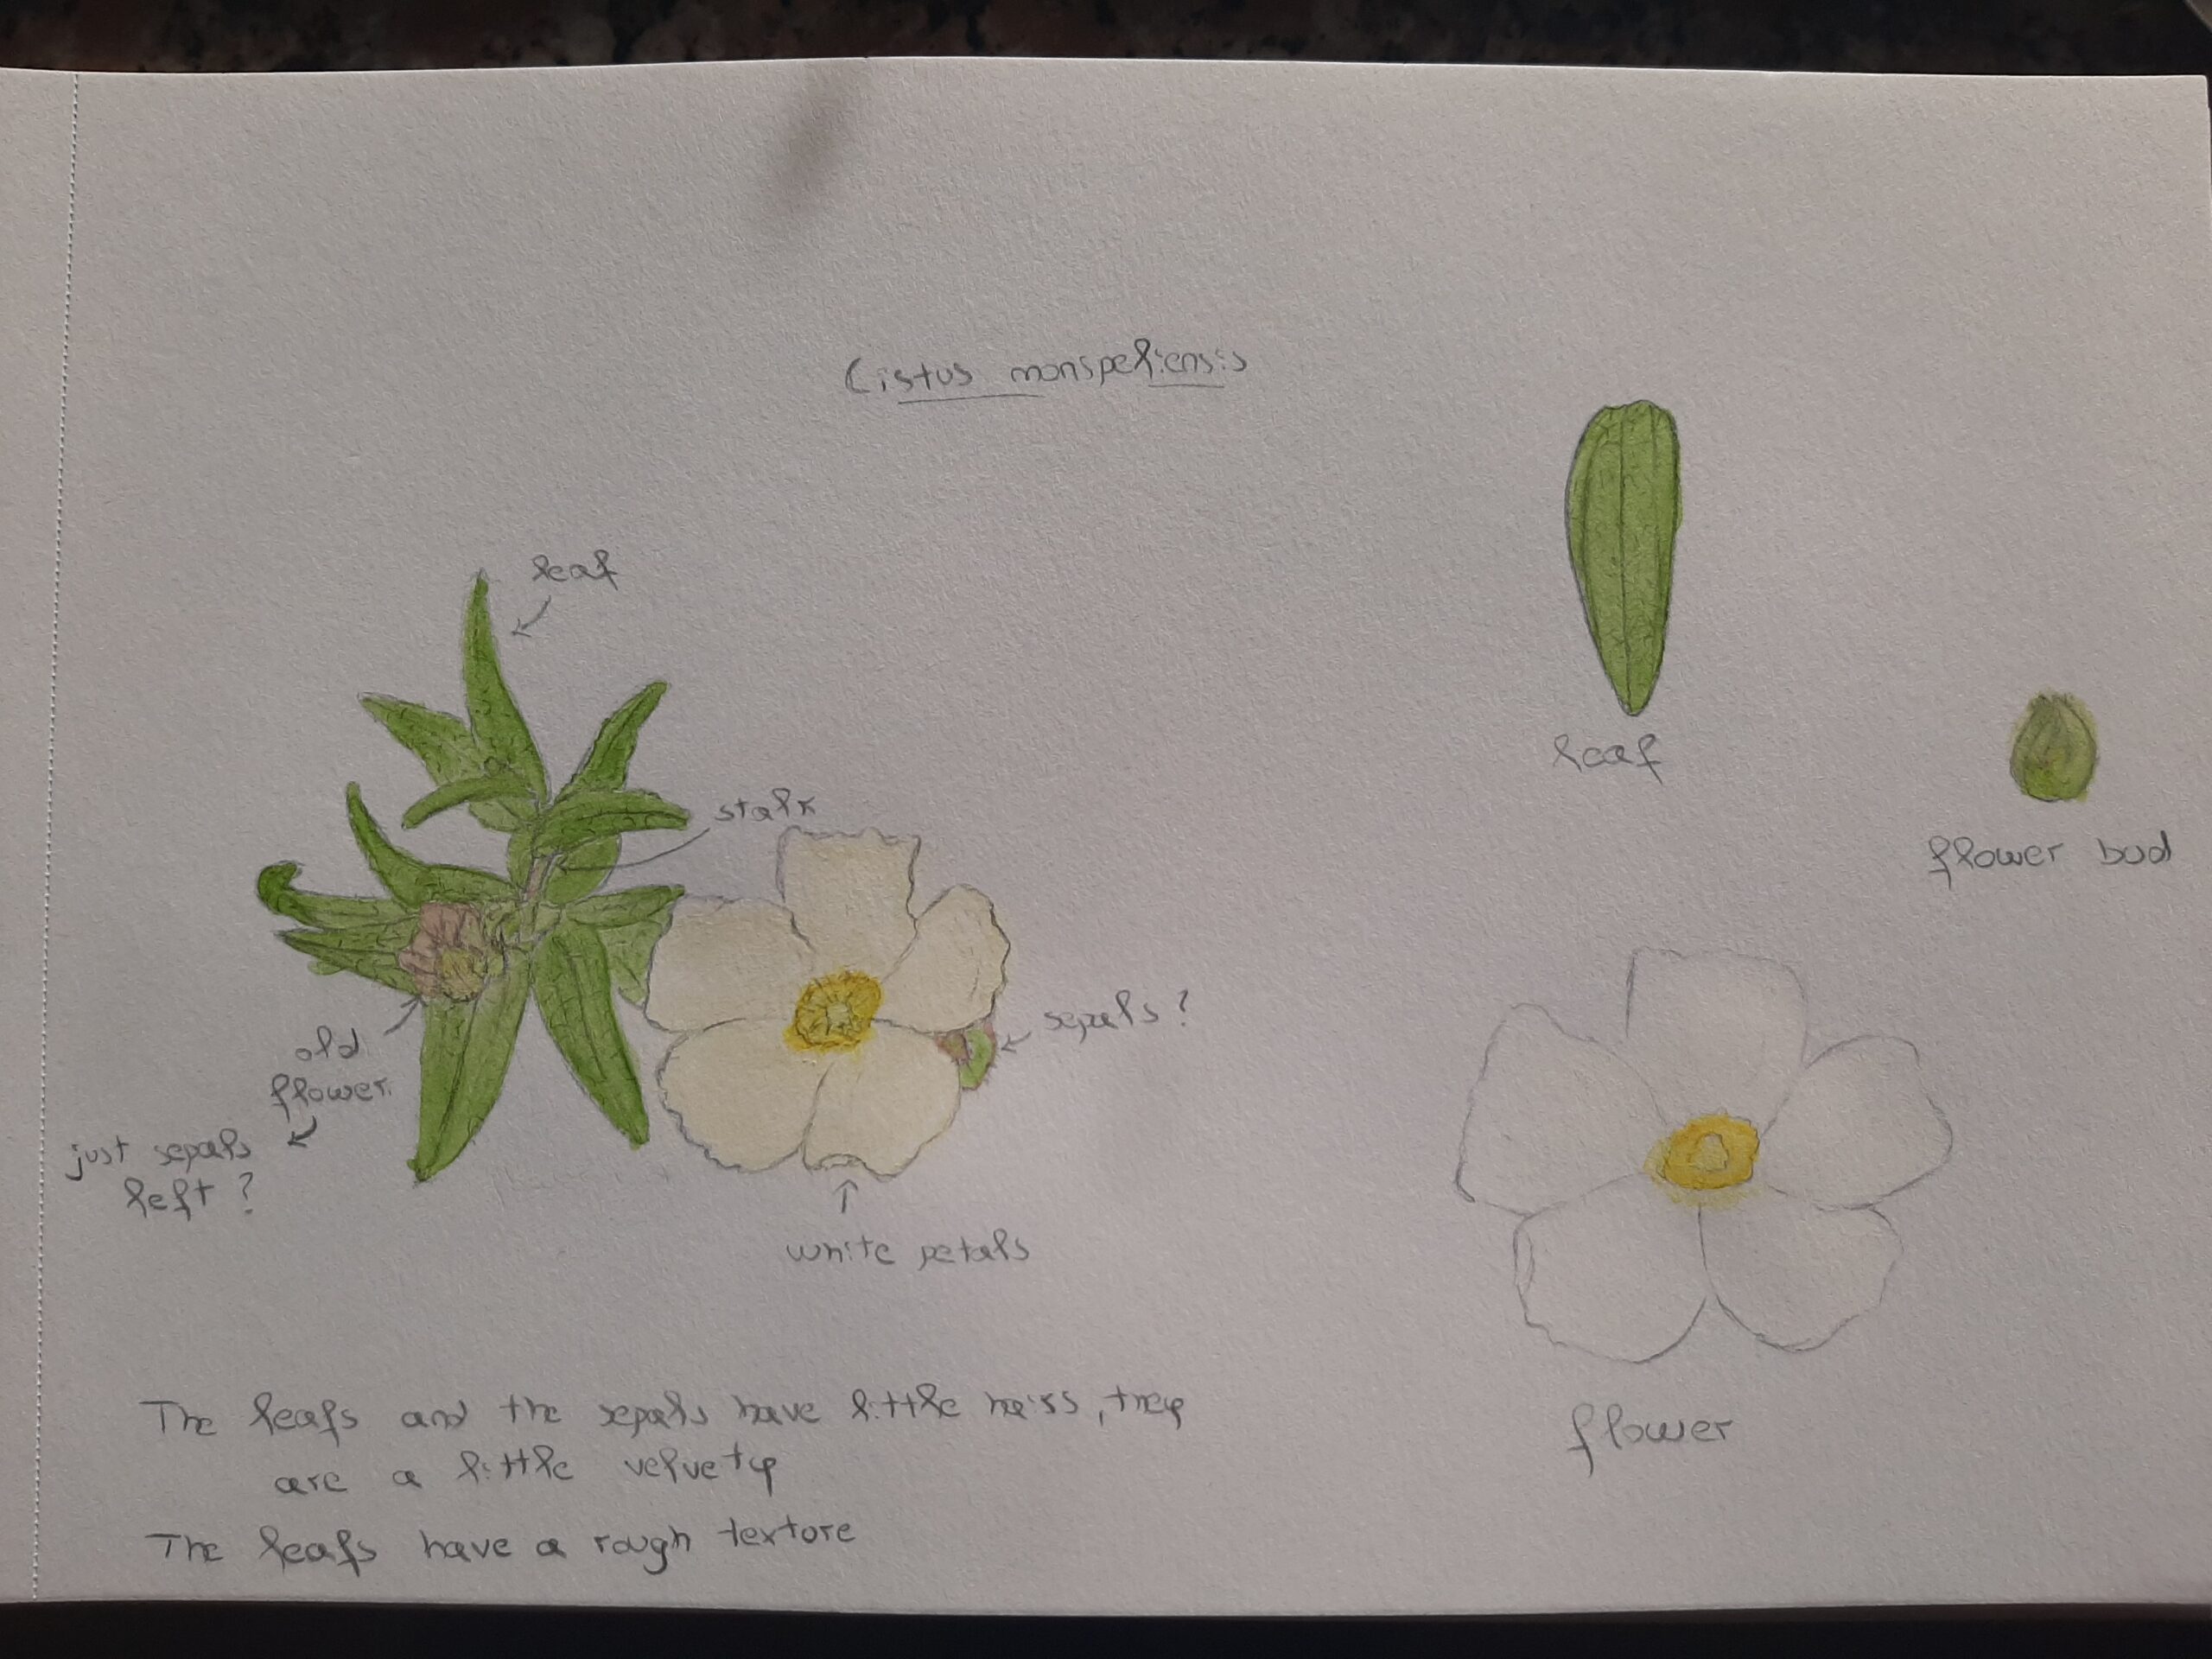 Cistus monspeliensis
leaf
leaf
stalk
flower bud
sepals?
old
flower.
just sepals
left?
white petals
The leafs and the sepals have little hairs, they
are a little velvety
The leafs have a rough texture
flower